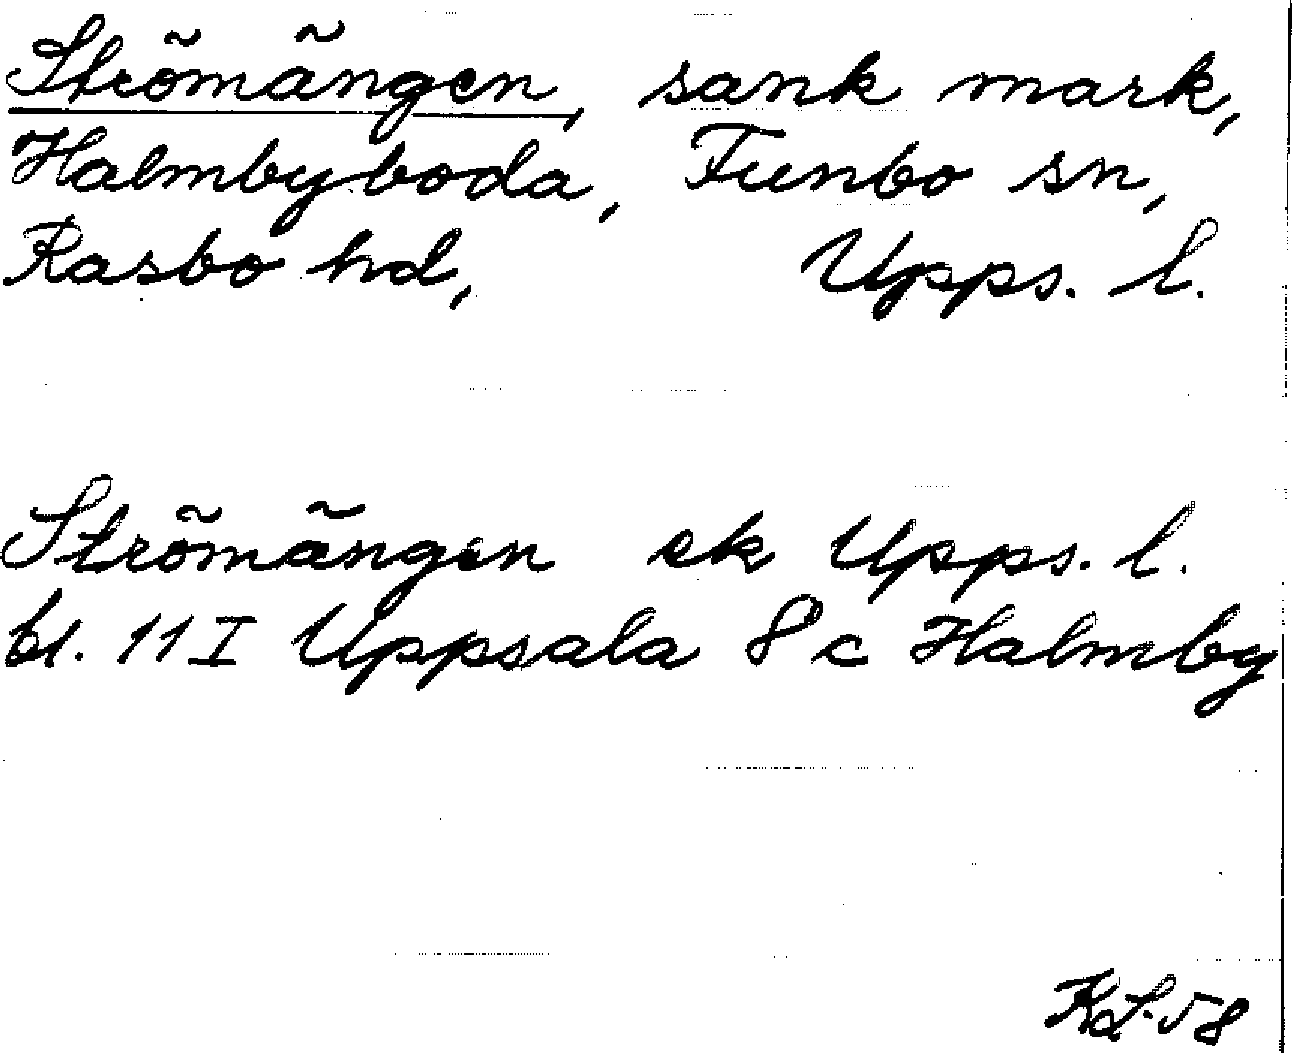 Strömängen, sank mark,
Halmbyboda, Funbo sn,
Rasbo hd, Upps. l.
Strömängen ek Upps. l.
bl. 11 I Uppsala 8 c Halmby
KL-58